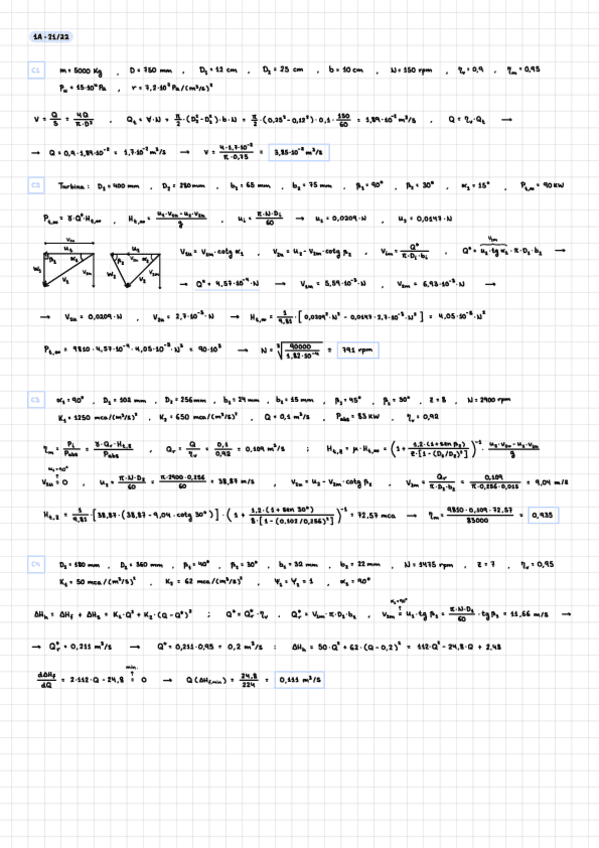 1A - 21/22
C1 m = 5000 Kg , D = 750 mm , D₁ = 12 cm , D₂ = 25 cm , b = 10 cm , N = 150 rpm , η_v = 0,9 , η_m = 0,95
r = 7,2·10⁵ Pa/(m³/s)²
v = Q/S = 4Q/(π·D²) , Q_t = V·N = π/2·(D₂²-D₁²)·b·N = π/2·(0,25²-0,12²)·0,1·150/60 = 1,89·10⁻² m³/s , Q = η_v·Q_t →
→ Q = 0,9·1,89·10⁻² = 1,7·10⁻² m³/s → v = 4·1,7·10⁻²/(π·0,75) = 3,85·10⁻² m/s
C2 Turbina : D₁ = 400 mm , D₂ = 280 mm , b₁ = 65 mm , b₂ = 75 mm , β₁ = 90° , β₂ = 30° , α₁ = 15° , P_t,∞ = 90 KW
P_t,∞ = γ·Q°·H_t,∞ , H_t,∞ = (u₁·V₁u-u₂·V₂u)/g , u_i = π·N·D_i/60 → u₁ = 0,0209·N , u₂ = 0,0147·N
V₁u = V₁m·cotg α₁ , V₂u = u₂ - V₂m·cotg β₂ , V_im = Q°/(π·D_i·b_i) , Q° = u₁·tg α₁·π·D₁·b₁ →
→ Q° = 4,57·10⁻⁴·N → V₁m = 5,59·10⁻³·N , V₂m = 6,93·10⁻³·N →
→ V₁u = 0,0209·N , V₂u = 2,7·10⁻³·N → H_t,∞ = 1/9,81·[0,0209²·N² - 0,0147·2,7·10⁻³·N²] = 4,05·10⁻⁵·N²
P_t,∞ = 9810·4,57·10⁻⁴·4,05·10⁻⁵·N³ = 90·10³ → N = ³√(90000/1,82·10⁻⁴) = 791 rpm
C3 α₁ = 90° , D₁ = 102 mm , D₂ = 256 mm , b₁ = 29 mm , b₂ = 15 mm , β₁ = 45° , β₂ = 30° , z = 8 , N = 2900 rpm
K₁ = 1250 mca/(m³/s)² , K₂ = 650 mca/(m³/s)² , Q = 0,1 m³/s , P_abs = 83 KW , η_v = 0,92
η_m = P_i/P_abs = γ·Q_r·H_t,z/P_abs , Q_r = Q/η_v = 0,1/0,92 = 0,109 m³/s ; H_t,z = μ·H_t,∞ = (1 + 1,2·(1+sen β₂)/(z·[1-(D₁/D₂)²]))⁻¹·(u₂·V₂u-u₁·V₁u)/g
α₁=90°
V₁u = 0 , u₂ = π·N·D₂/60 = π·2900·0,256/60 = 38,87 m/s , V₂u = u₂ - V₂m·cotg β₂ , V₂m = Q_r/(π·D₂·b₂) = 0,109/(π·0,256·0,015) = 9,04 m/s
H_t,z = 1/9,81·[38,87·(38,87 - 9,04·cotg 30°)]·(1 + 1,2·(1+sen 30°)/(8·[1-(0,102/0,256)²]))⁻¹ = 72,57 mca → η_m = 9810·0,109·72,57/83000 = 0,935
C4 D₁ = 180 mm , D₂ = 360 mm , β₁ = 40° , β₂ = 30° , b₁ = 32 mm , b₂ = 22 mm , N = 1475 rpm , z = 7 , η_v = 0,95
K₁ = 50 mca/(m³/s)² , K₂ = 62 mca/(m³/s)² , Ψ₁ = Ψ₂ = 1 , α₁ = 90°
ΔH_h = ΔH_f + ΔH_s = K₁·Q² + K₂·(Q - Q°)² ; Q° = Q_r°·η_v , Q_r° = V₁m·π·D₁·b₁ , V₁m = u₁·tg β₁ = π·N·D₁/60·tg β₁ = 11,66 m/s →
→ Q_r° = 0,211 m³/s → Q° = 0,211·0,95 = 0,2 m³/s : ΔH_h = 50·Q² + 62·(Q - 0,2)² = 112·Q² - 24,8·Q + 2,48
min.
dΔH_h/dQ = 2·112·Q - 24,8 = 0 → Q(ΔH_h,min) = 24,8/224 = 0,111 m³/s